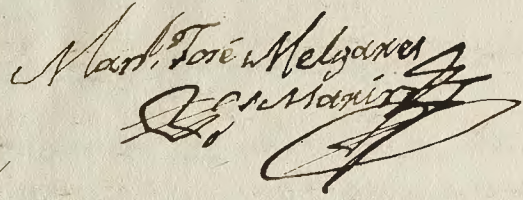 Man.l José Melgares
Marin